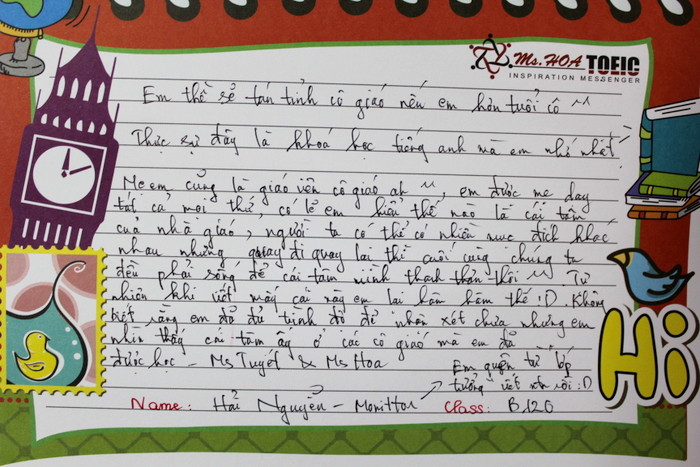 Ms. HOA TOEIC
INSPIRATION MESSENGER
Em thề sẽ tán tỉnh cô giáo nếu em hơn tuổi cô ^^
Thực sự đây là khoá học tiếng anh mà em nhớ nhất
Mẹ em cũng là giáo viên cô giáo ah ^^, em được mẹ dạy
tất cả mọi thứ, có lẽ em hiểu thế nào là cái tâm
của nhà giáo, người ta có thể có nhiều mục đích khác
nhau nhưng quay đi quay lại thì cuối cùng chúng ta
đều phải sống để cái tâm mình thanh thản thôi ^^. Tự
nhiên khi viết mấy cái này em lại hâm hâm thế :D. Không
biết rằng em đã đủ trình độ để nhận xét chưa nhưng em
nhìn thấy cái tâm ấy ở các cô giáo mà em đã
được học - Ms Tuyết & Ms Hoa
Em quyền từ bếp
tưởng viết xin rồi :D
Name: Hải Nguyễn - Monittor Class: B126
Hi